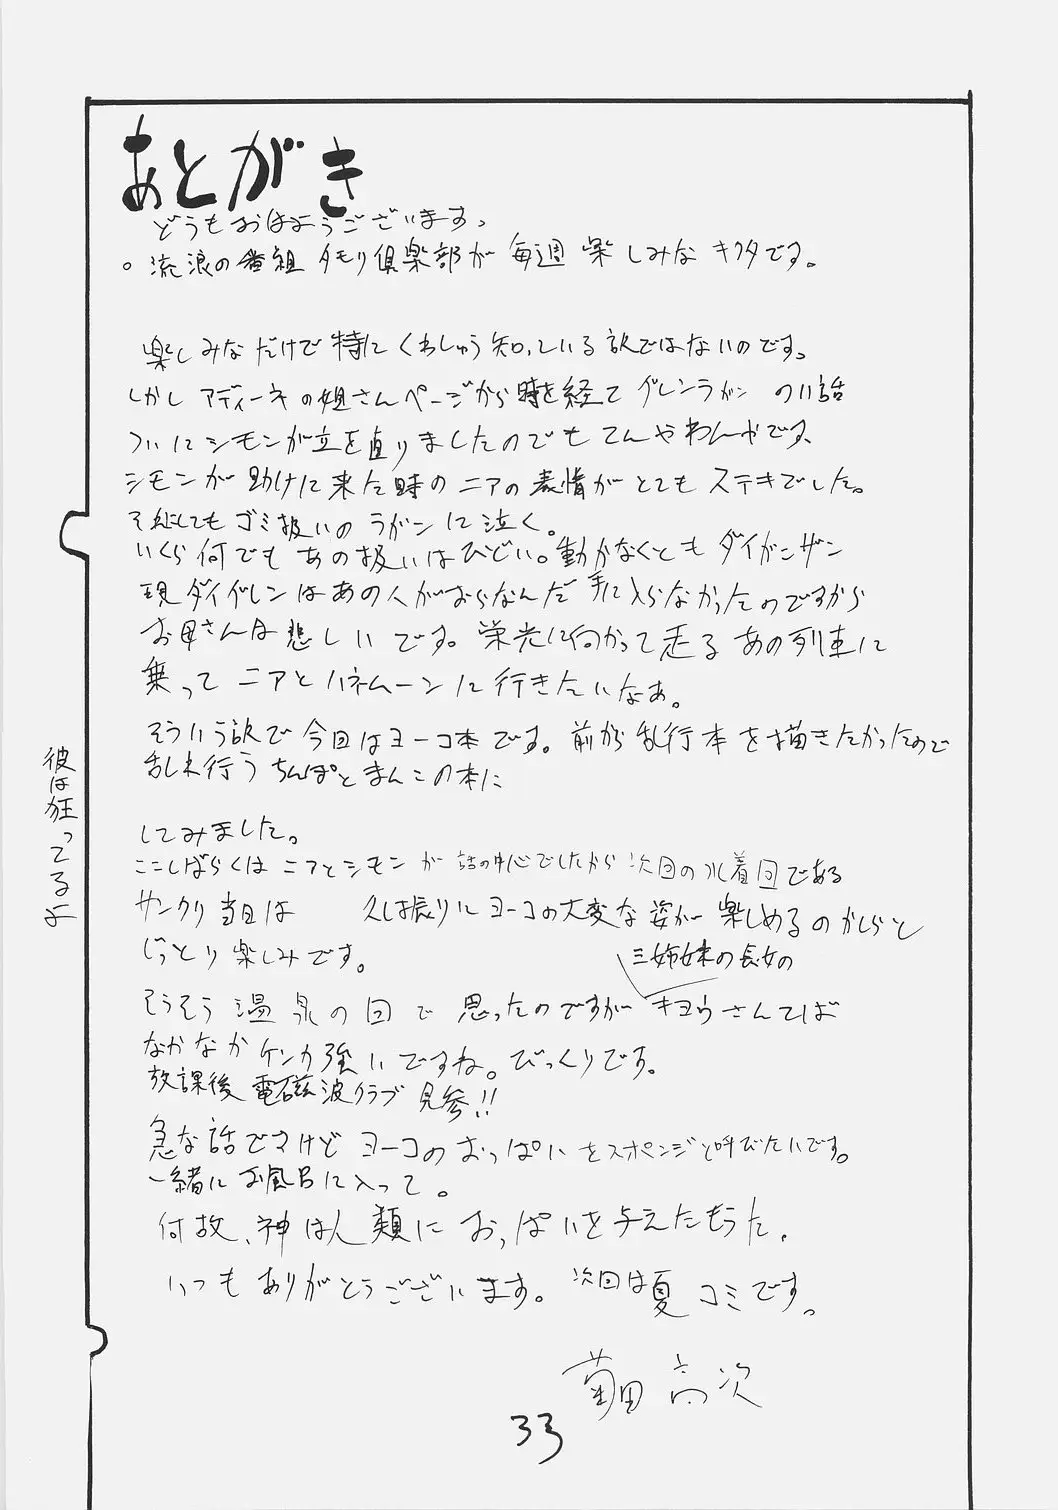 あとがき
どうもおはようございます、
。流浪の番組 タモリ倶楽部が 毎週 楽しみな キクタです。
楽しみなだけで特にくわしゅう知っている訳ではないのです。
しかし アディーネの姐さんページから時を経て グレンラガン の11話
ついにシモンが立ち直りましたのでもてんやわんやです、
シモンが助けに来た時のニアの表情がとてもステキでした。
それにしてもゴミ扱いのラガンに泣く。
いくら何でもあの扱いはひどい。動かなくともダイガンザン
現ダイグレンはあの人がおらなんだら手に入らなかったのですから
お母さんは悲しいです。栄光に向かって走るあの列車に
乗って ニアとハネムーンに行きたいなぁ。
そういう訳で今回はヨーコ本です。前から乱行本を描きたかったので
乱れ行うちんぽとまんこの本に
してみました。
ここしばらくは ニアとシモン が 話の中心でしたから 次回の水着回である
サンクリ当日は 久し振りにヨーコの大変な姿が楽しめるのかしらと
じっとり楽しみです。
三姉妹の長女の
そうそう温泉の回で思ったのですが キヨウさんてば
なかなかケンカ強いですね。びっくりです。
放課後電磁波クラブ見参!!
急な話ですけど ヨーコのおっぱいをスポンジと呼びたいです。
一緒にお風呂に入って。
何故、神は人類におっぱいを与えたもうた.
いつもありがとうございます。次回は夏コミです。
菊田 高次
33
彼は狂ってるよ